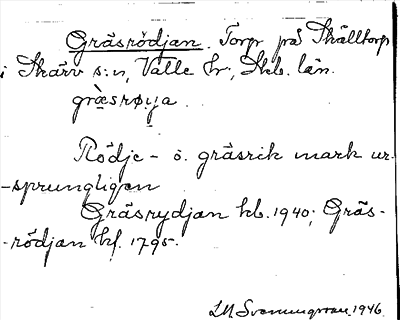 Gräsrödjan. Torp på Skälltorp
i Skärv s:n, Valle hr, Skb. län.
grä̀srøi̯a.
Rödje- o. gräsrik mark ur-
-sprungligen
Gräsrydjan kb. 1940; Gräs-
-rödjan hf. 1795.
1946.